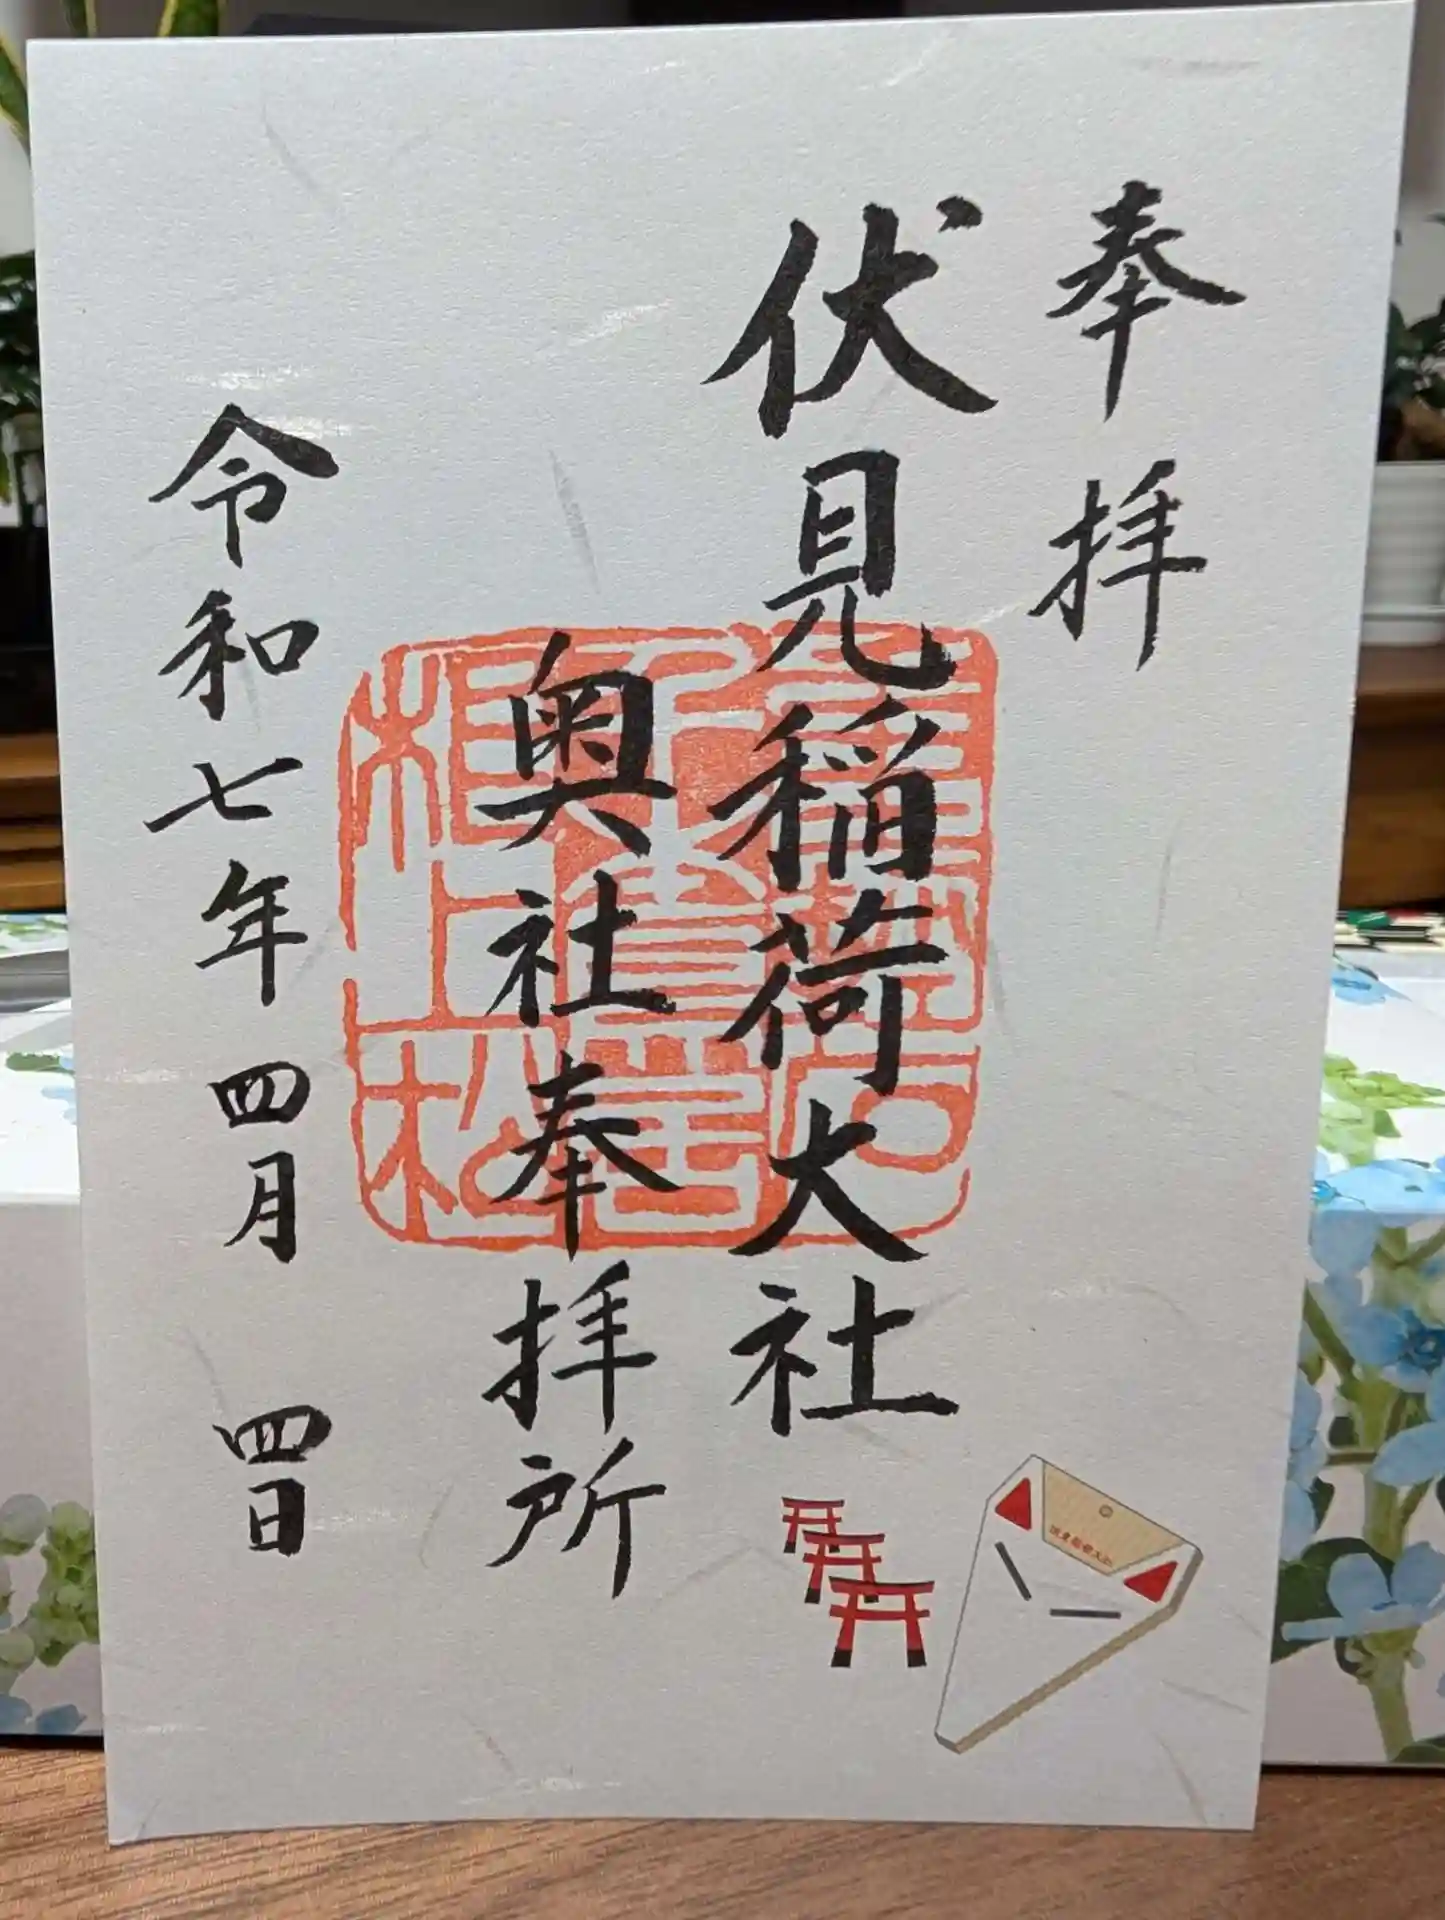 奉拝
伏見稲荷大社
奥社奉拝所
令和七年四月 四日
伏見稲荷大社